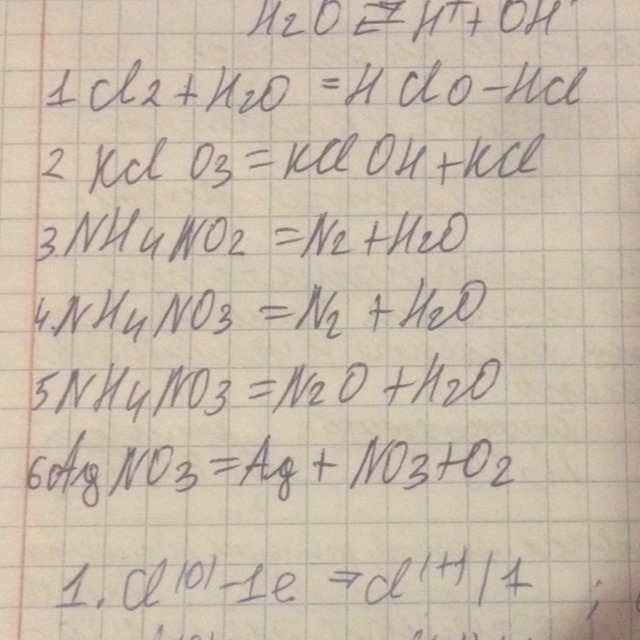 H2O ⇄ H+ + OH-
1 Cl2 + H2O = HClO - HCl
2 KClO3 = KClOH + KCl
3. NH4NO2 = N2 + H2O
4. NH4NO3 = N2 + H2O
5 NH4NO3 = N2O + H2O
6 AgNO3 = Ag + NO3 + O2
1. Cl(0) - 1e = Cl(+) | 1 ;